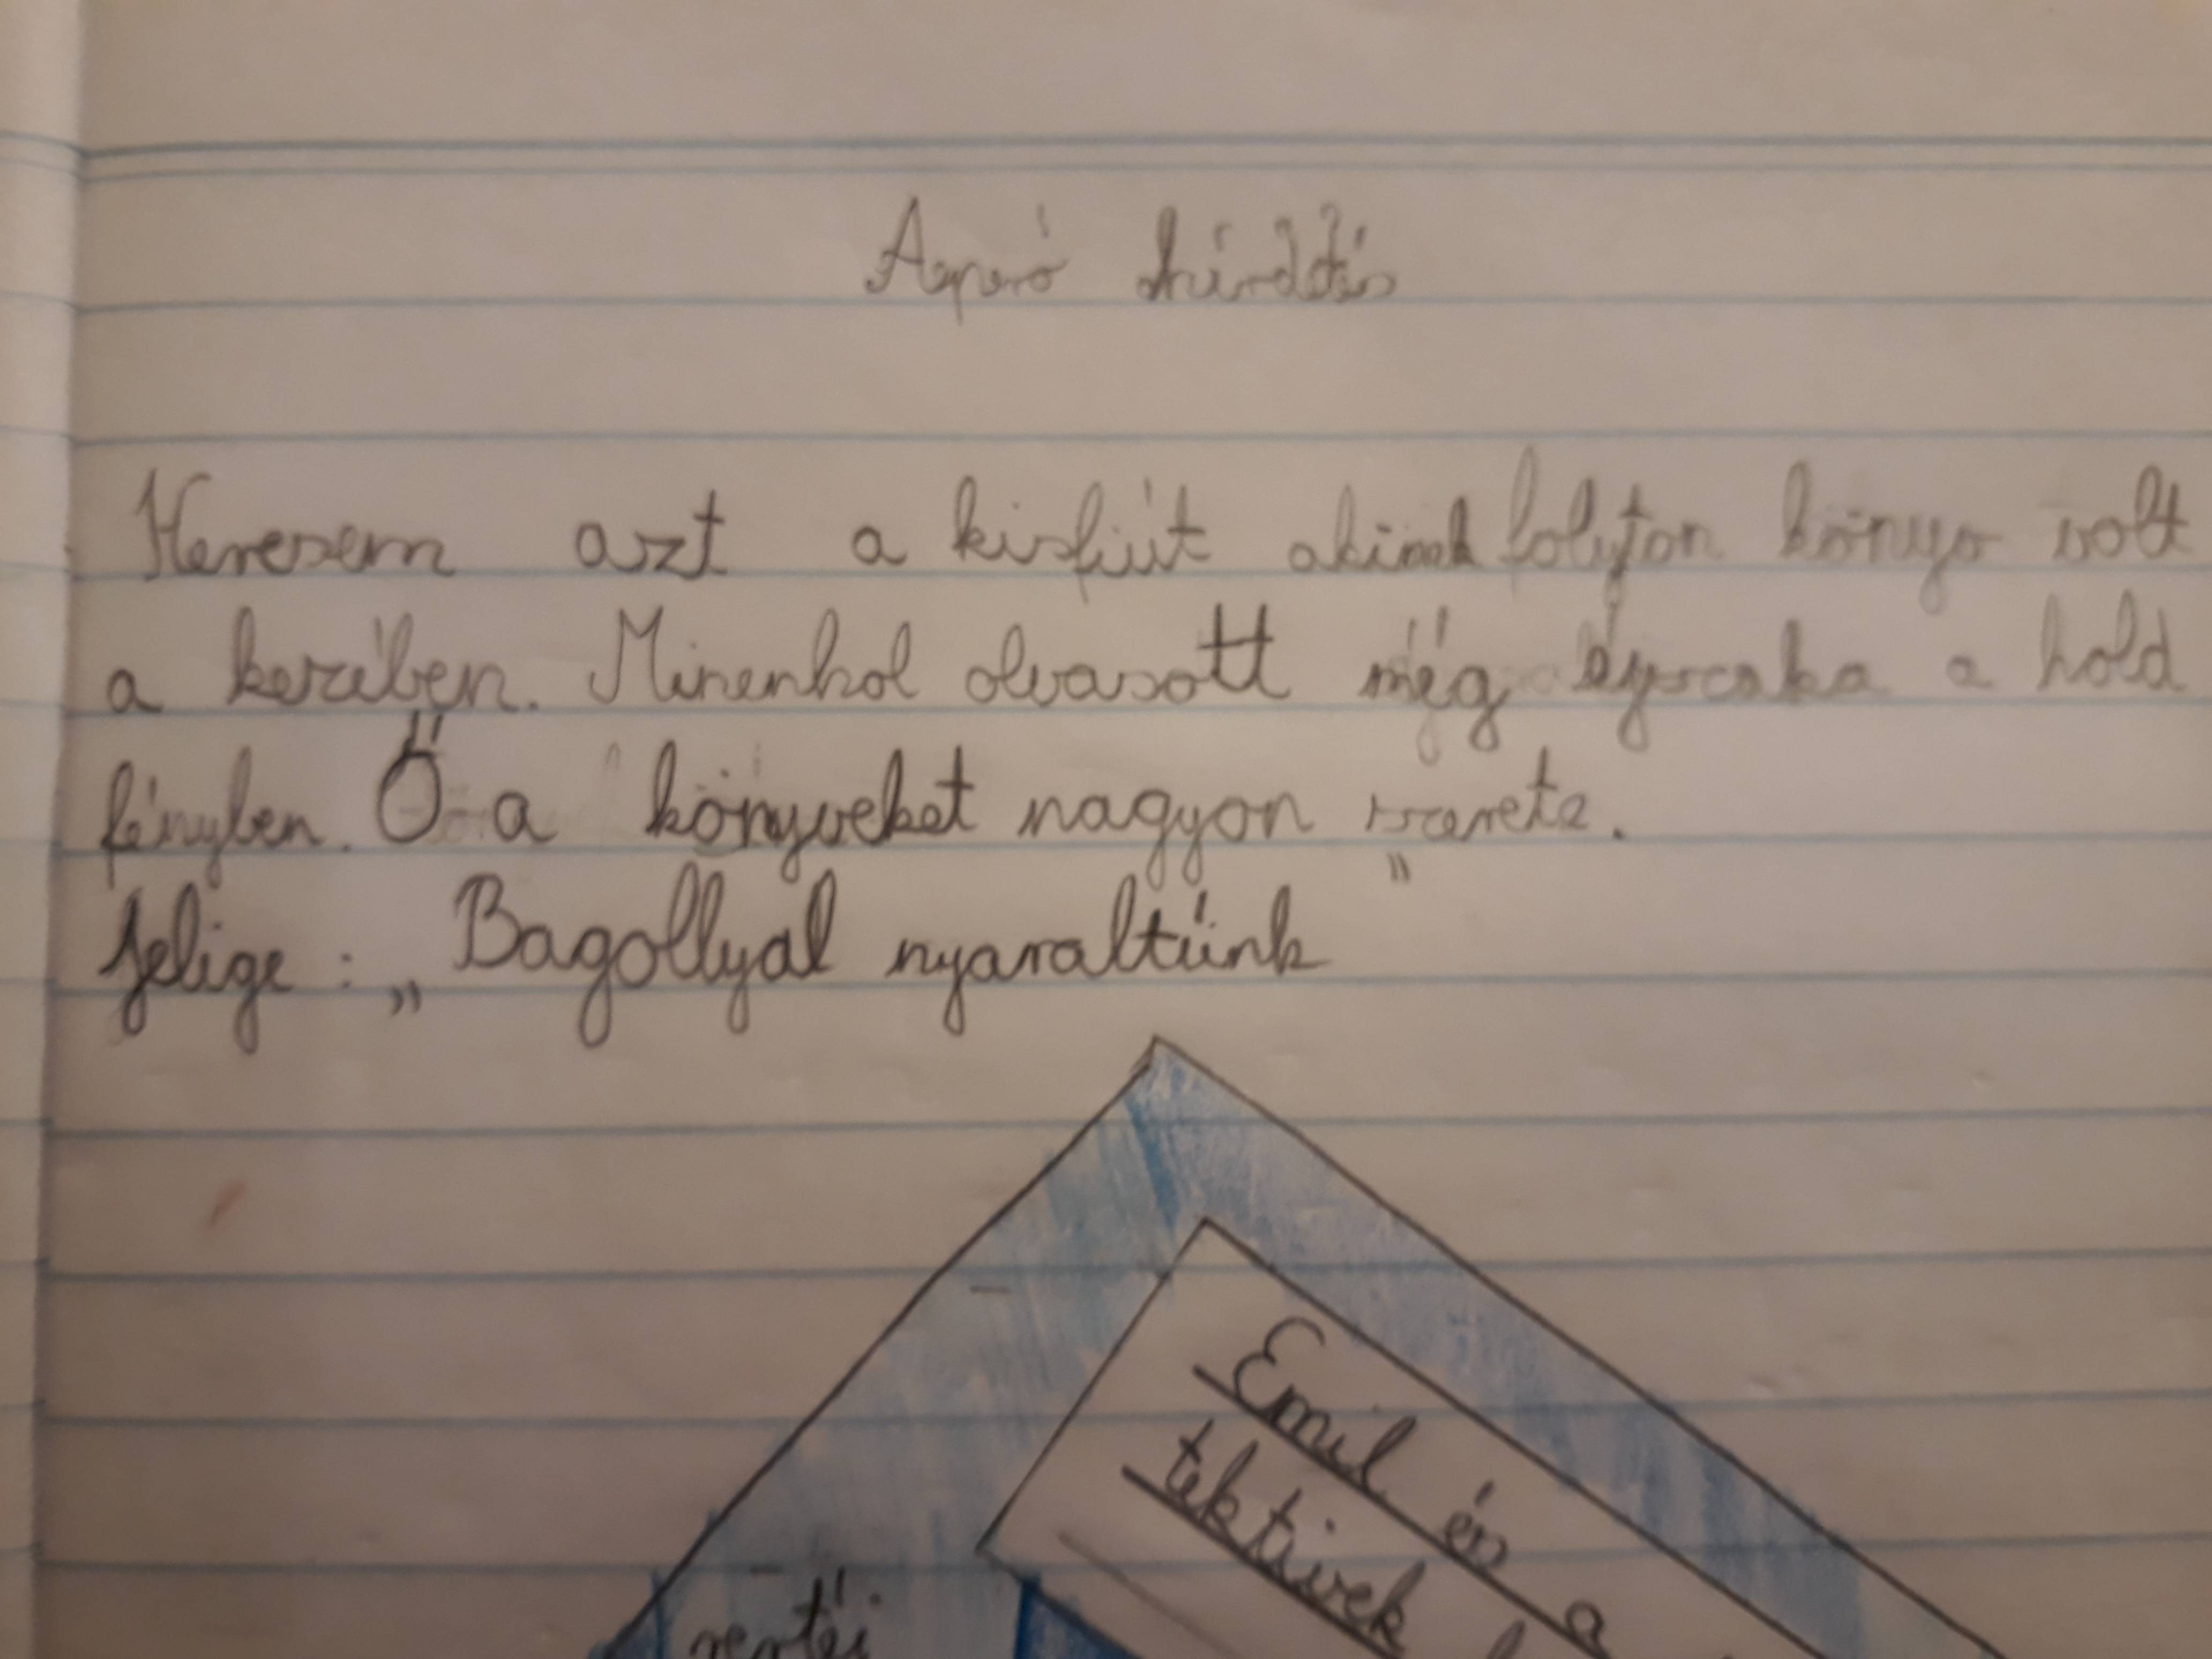 Apró hírdtés
Keresem azt a kisfiút akinek folyton könyv volt
a kezében. Minenhol olvasott még éjszaka a hold
fényben. Ő a könyveket nagyon szerete.
Jelige: „Bagollyal nyaraltünk”
Emil és a
tektívek